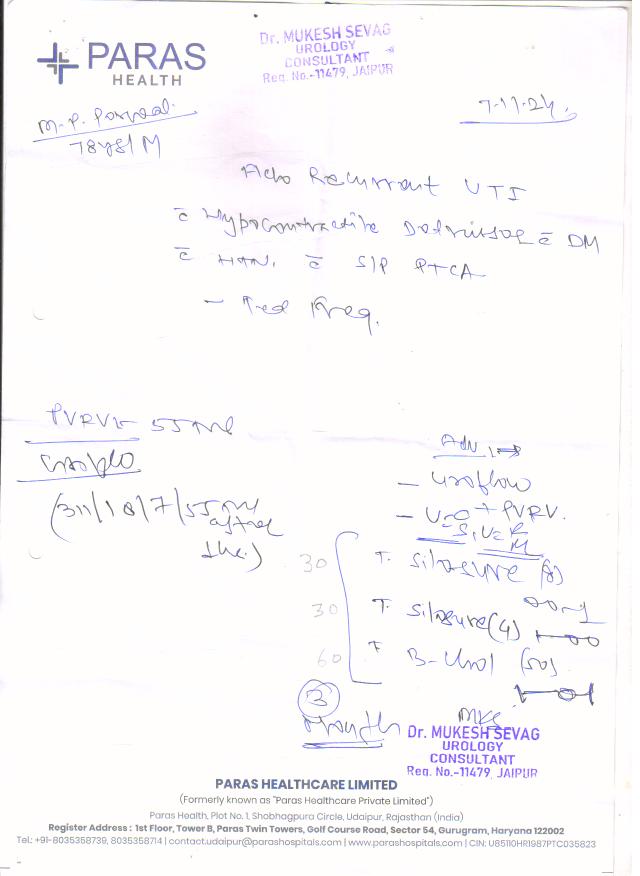 PARAS
HEALTH
Dr. MUKESH SEVAG
UROLOGY
CONSULTANT
Reg. No.-11479, JAIPUR
M.P. Porwal
78yrs/M
7-11-24.
Recurrent UTI
c̄ Hypocontractile c̄ DM
c̄ HTN. c̄ S/P PTCA
- Freq.
PVRV- 55 ml
Uroflo
(311/18/7/55 ml
after
Adv.
- Uroflow
- PVRV.
30 T. Silosure (8)
00-1
30 T. Silosure (4) 1-00
60 T B-Urol (50)
1-01
3
Month
Dr. MUKESH SEVAG
UROLOGY
CONSULTANT
Reg. No.-11479, JAIPUR
PARAS HEALTHCARE LIMITED
(Formerly known as "Paras Healthcare Private Limited")
Paras Health, Plot No. 1, Shobhagpura Circle, Udaipur, Rajasthan (India)
Register Address : 1st Floor, Tower B, Paras Twin Towers, Golf Course Road, Sector 54, Gurugram, Haryana 122002
Tel.: +91-8035358739, 8035358714 | contact.udaipur@parashospitals.com | www.parashospitals.com | CIN: U85110HR1987PTC035823